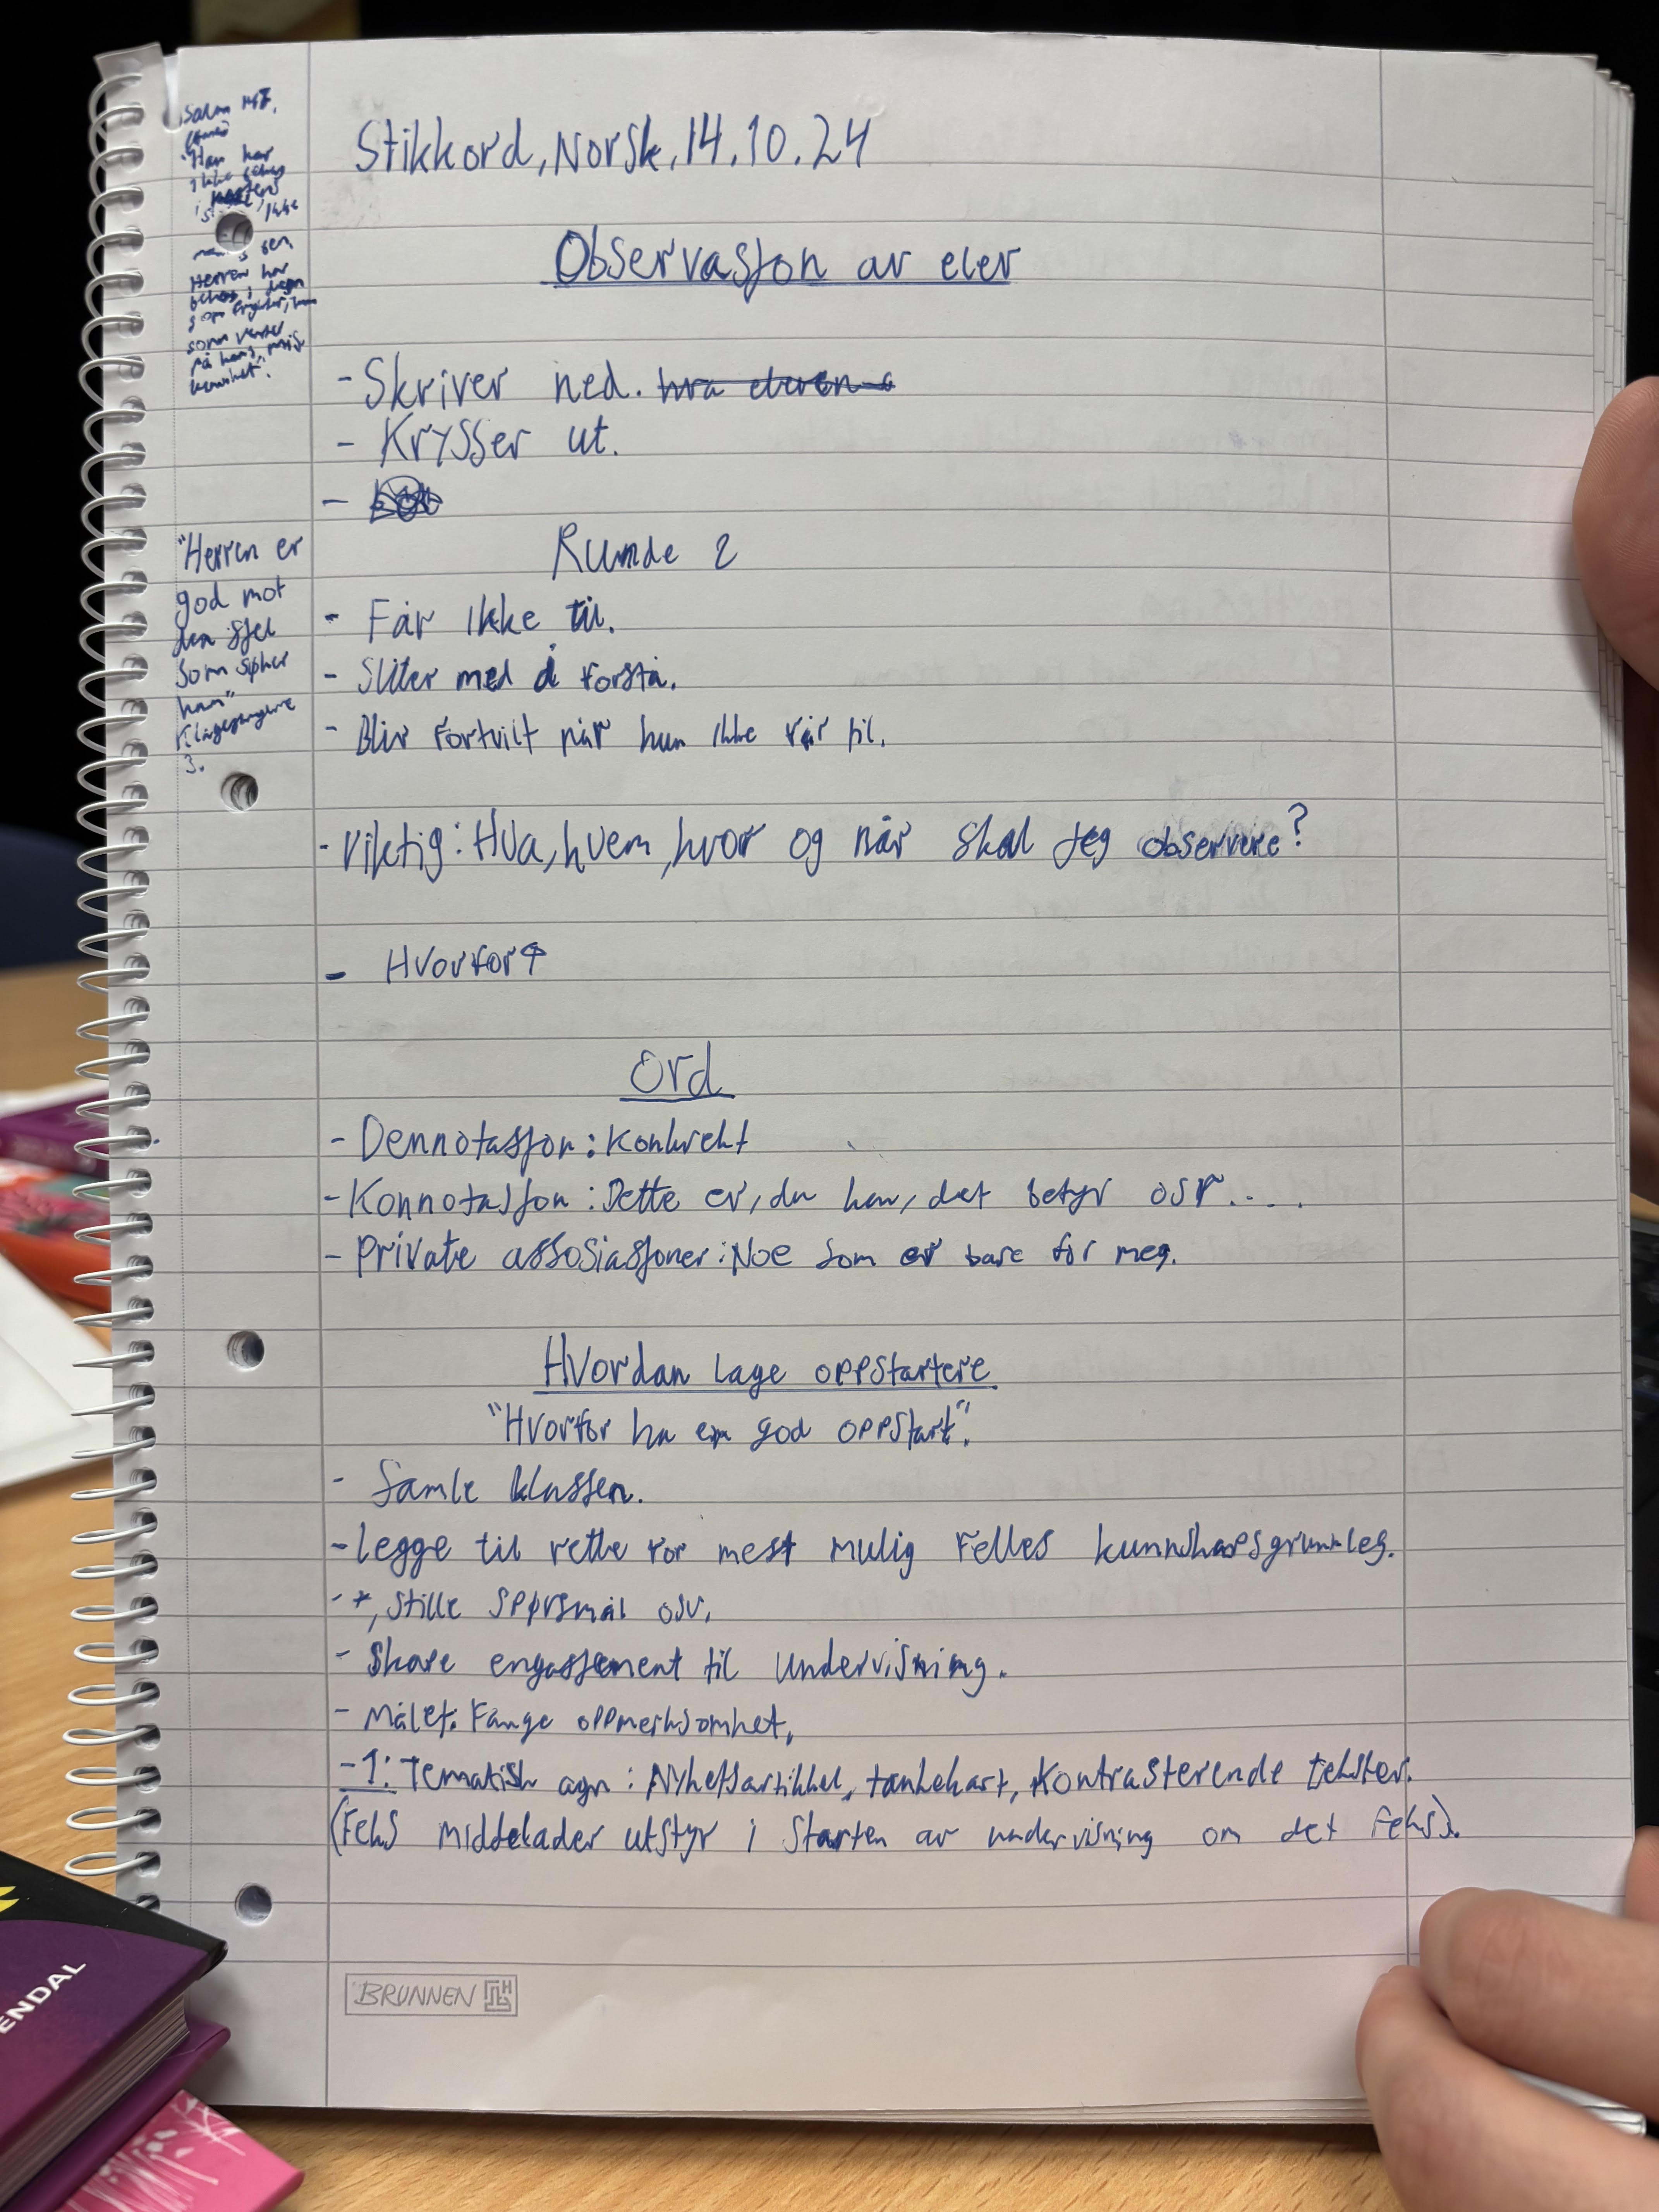 Salm 147.
"Han har
ikke
hestens
ikke
sen,
Herren har
behag i dem
som
som venter
på hans mis
kunnhet".
"Herren er
god mot
den sjel
som søker
ham"
Klagesangene
3.
Stikkord, Norsk, 14.10.24
Observasjon av elev
- Skriver ned. hva eleven
- Krysser ut.
-
Runde 2
- Får ikke til.
- Sliter med å forstå.
- Blir fortvilt når hun ikke får til.
- Viktig: Hva, hvem, hvor og når skal jeg observere?
- Hvorfor↑
Ord
- Dennotasjon: Konkret
- Konnotasjon: Dette er, du har, det betyr osv....
- Private assosiasjoner: Noe som er bare for meg.
Hvordan lage oppstartere
"Hvorfor ha en god oppstart".
- Samle klassen.
- Legge til rette for mest mulig felles kunnskapsgrunnlag.
- *, stille spørsmål osv.
- Skape engasjement til undervisning.
- Målet: Fange oppmerksomhet.
- 1: Tematisk agn: Nyhetsartikkel, tankekart, kontrasterende tekster.
(Feks middelader utstyr i starten av undervisning om det feks).
BRUNNEN
ENDAL